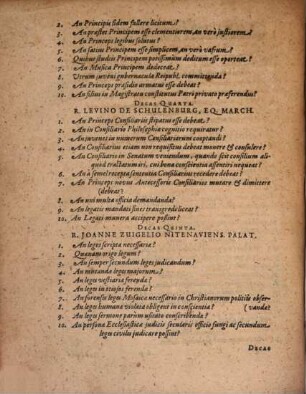 2. An Principis fidem fallere licitum?
3. An præstet Principem esse clementiorem, an verò justiorem?
4. An Princeps legibus solutus?
5. An satius Principem esse simplicem, an verò vafrum?
6. Quibus studiis Principem potissimùm deditum esse oporteat?
7. An Musica Principem dedeceat?
8. Utrum juveni gubernacula Reipubl. committenda?
9. An Princeps præsidio armatus esse debeat?
10. An filius in Magistratu constitutus Patri privato præferendus?
DECAS QUARTA.
R. LEVINO DE SCHULENBURG, EQ. MARCH.
1. An Princeps Consiliariis stipatus esse debeat?
2. An in Consiliario Philosophiæ cognitio requiratur?
3. An juvenes in numerum Consiliariorum cooptandi?
4. An Consiliarius etiam non requisitus debeat monere & consulere?
5. An Consiliario in Senatum veniendum, quando scit consilium aliquod tractatum iri, cui bona conscientia assentiri nequeat?
6. An à semel recepta sententia Consiliarius recedere debeat?
7. An Princeps novus Antecessoris Consiliarios mutare & dimittere
(debeat?
8. An uni multa officia demandanda?
9. An legatis mandati fines transgredi liceat?
10. An Legatis munera accipere possint?
DECAS QUINTA.
R. JOANNE ZUIGELIO NITENAVIENS. PALAT.
1. An leges scripta necessaria?
2. Quænam origo legum?
3. An semper secundum leges judicandum?
4. An mutandæ leges majorum?
5. An leges vestiaria ferenda?
6. An lege in otiosos ferenda?
7. An forenses leges Mosaicæ necessario in Christianorum politiis obser-
8. An leges humanæ violatæ obligent in conscientia? (vandæ?
9. An leges sermone parùm usitato conscribendæ?
10. An persona Ecclesiastica judicis secularis officio fungi ac secundum
leges civiles judicare possint?
DECAS